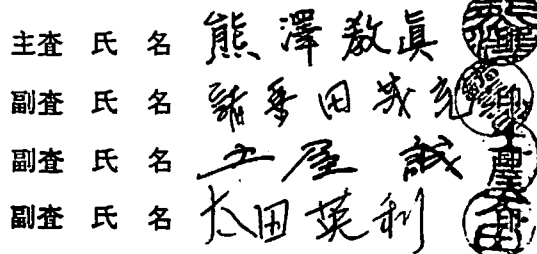 主査 氏 名 熊 澤 教 眞
副査 氏 名 諸 喜 田 茂 充
副査 氏 名 土 屋 誠
副査 氏 名 太 田 英 利